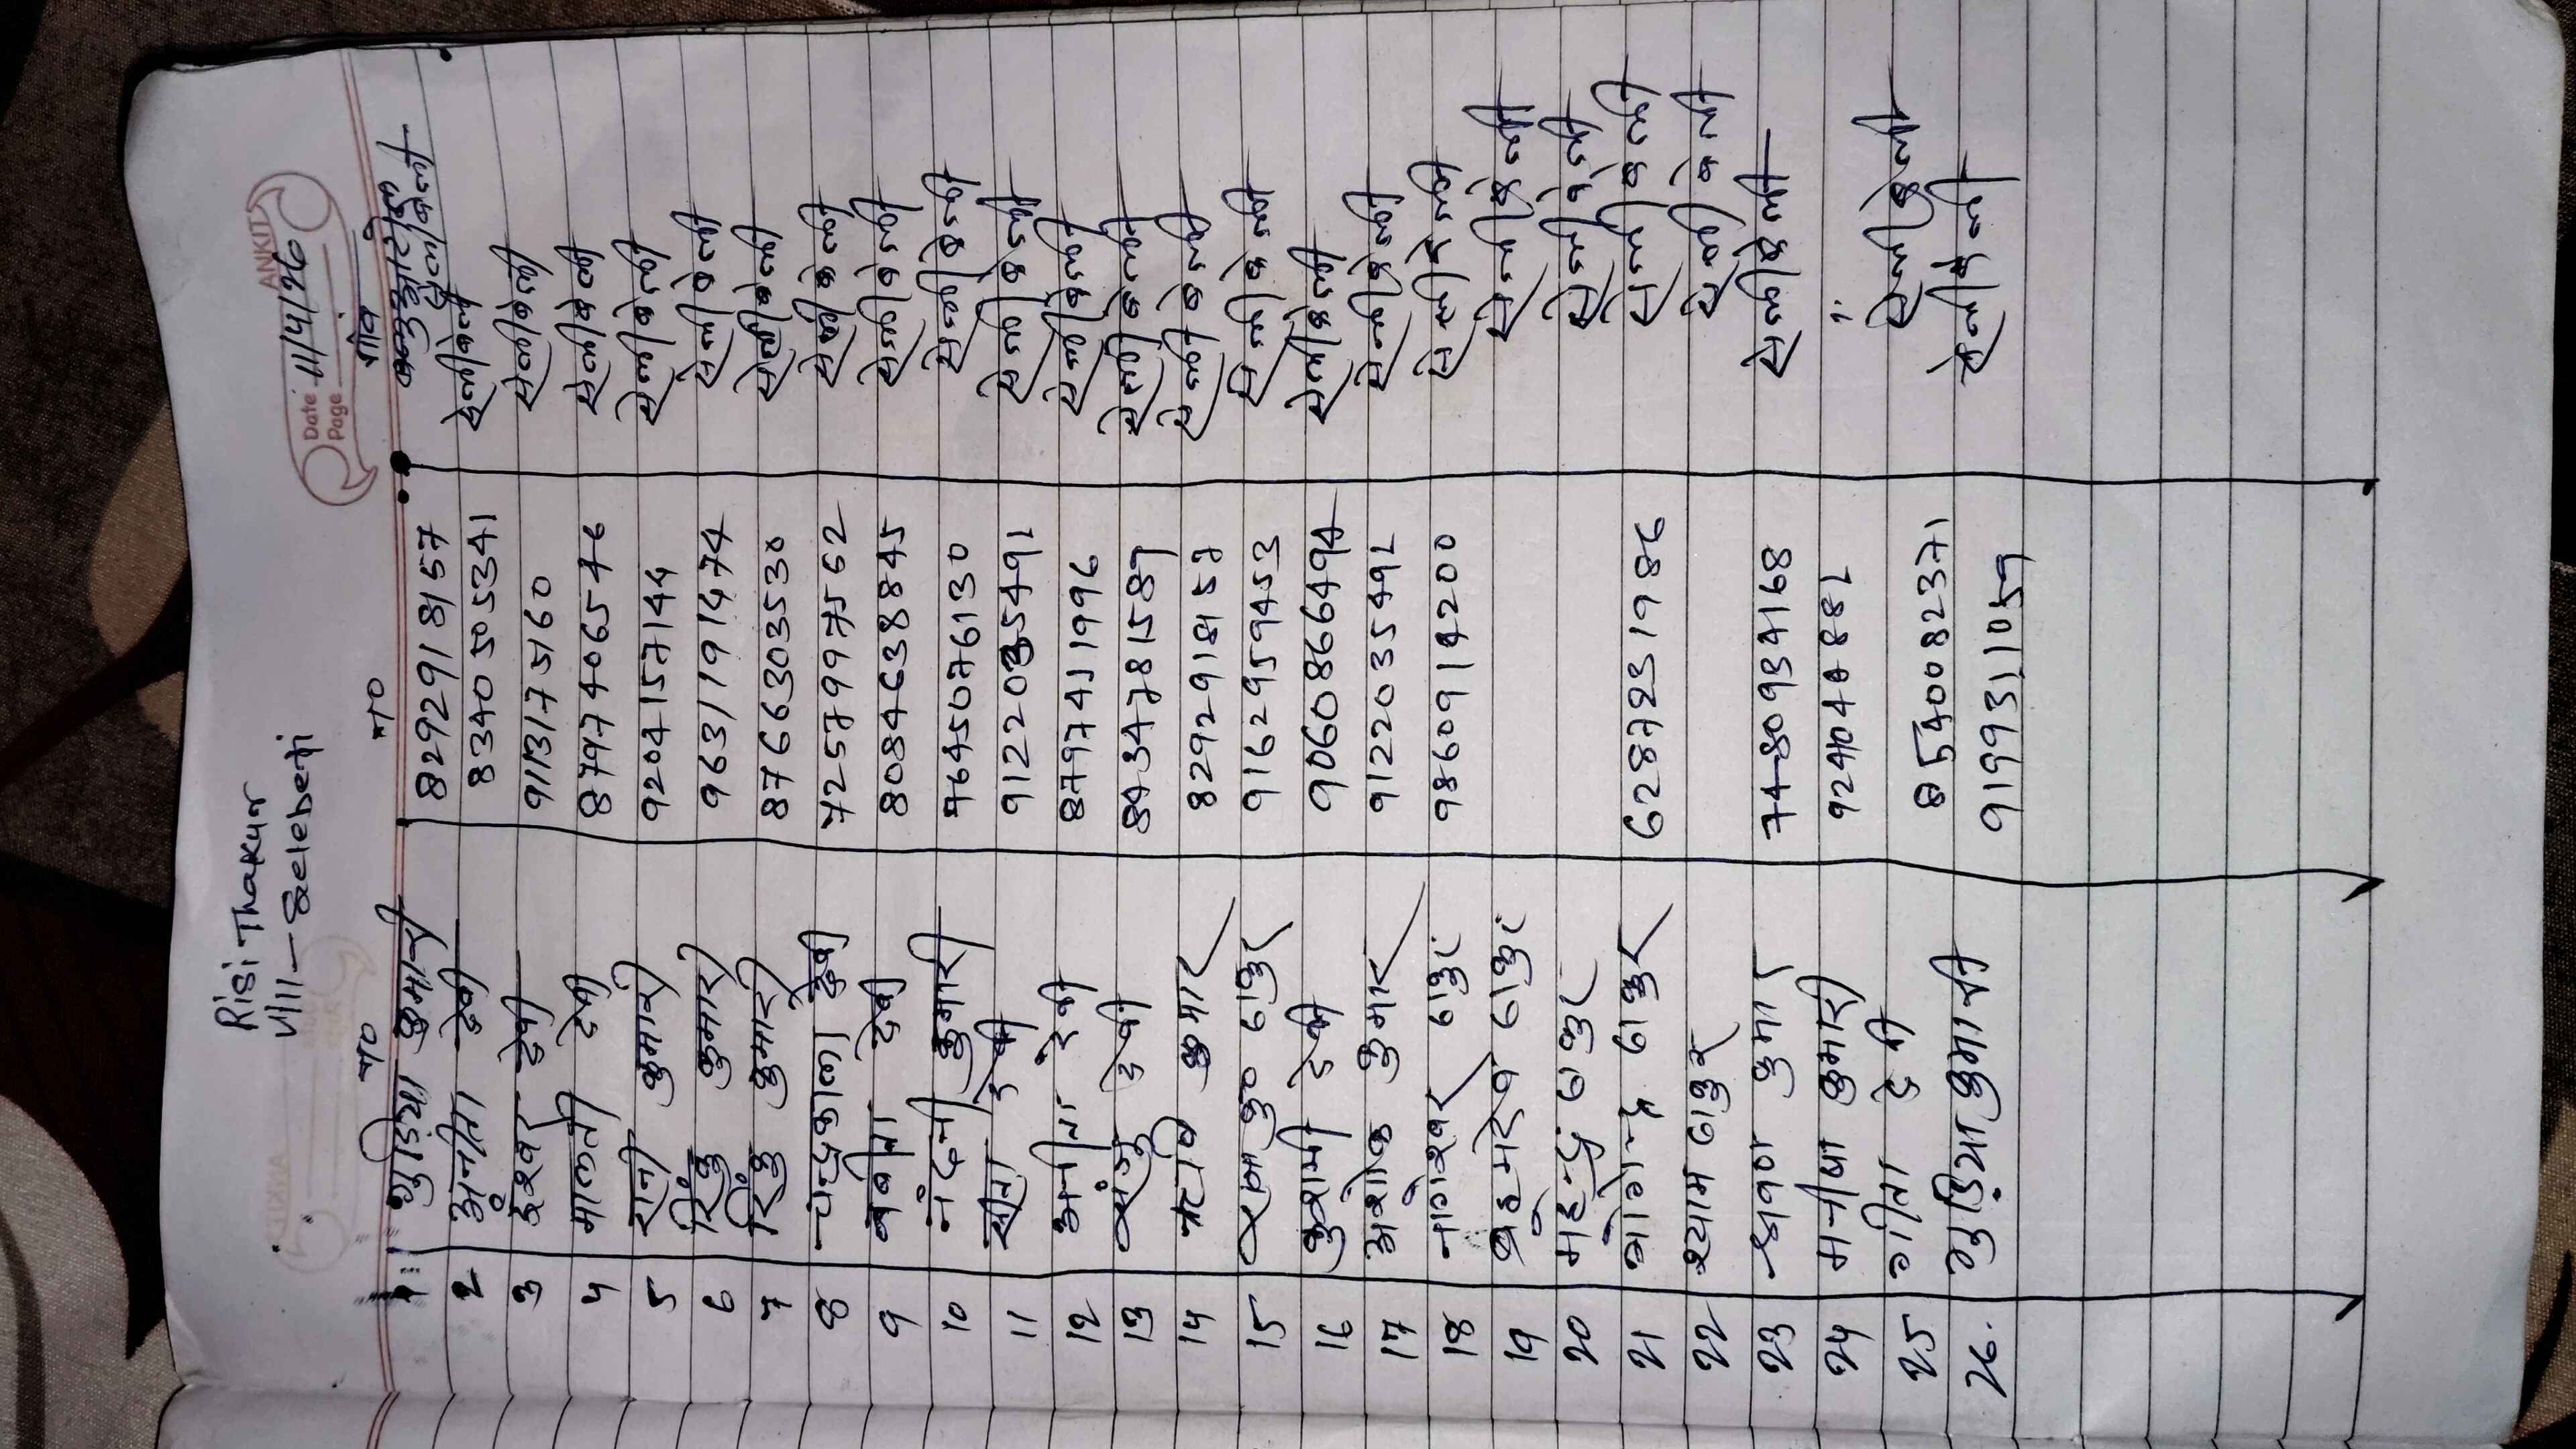 Risi Thakur
Vill - Selebeti
ANKIT
Date 11/4/26
Page
गांव
1. गुड़िया कुमारी 8292918157
2 अनीता देवी 8340505341 सेलीबेली
3 ईश्वर देवी 9113175160 सेलीबेली
4 मालती देवी 8797406546 सेलीबेली
5 रानी कुमारी 9204157144 सेलीबेली
6 रिंकु कुमारी 9631191474 सेलीबेली
7 रिंकु कुमारी 8766303530 सेलीबेली
8 चन्द्रकला देवी 7257997562 सेलीबेली
9 बबीता देवी 8084638845 सेलीबेली
10 नंदनी कुमारी 9645076130 सेलीबेली
11 देवी 9122035491 सेलीबेली
12 अनीता देवी 8797411996 सेलीबेली
13 देवी 8434781589 सेलीबेली
14 कुमार 8292918157 सेलीबेली
15 ठाकुर 9162959453 सेलीबेली
16 देवी 9060866494 सेलीबेली
17 अशोक कुमार 9122035491 सेलीबेली
18 नागेश्वर ठाकुर 9860914200 सेलीबेली
19 ठाकुर सेलीबेली
20 महेन्द्र ठाकुर सेलीबेली
21 ठाकुर 6287231986 सेलीबेली
22 श्याम ठाकुर सेलीबेली
23 कुमार 7480934168 सेलीबेली
24 मनीषा कुमारी 924048881
25 गीता देवी 8540082371 सेलीबेली
26. गुड़िया कुमारी 9199311059 सेलीबेली